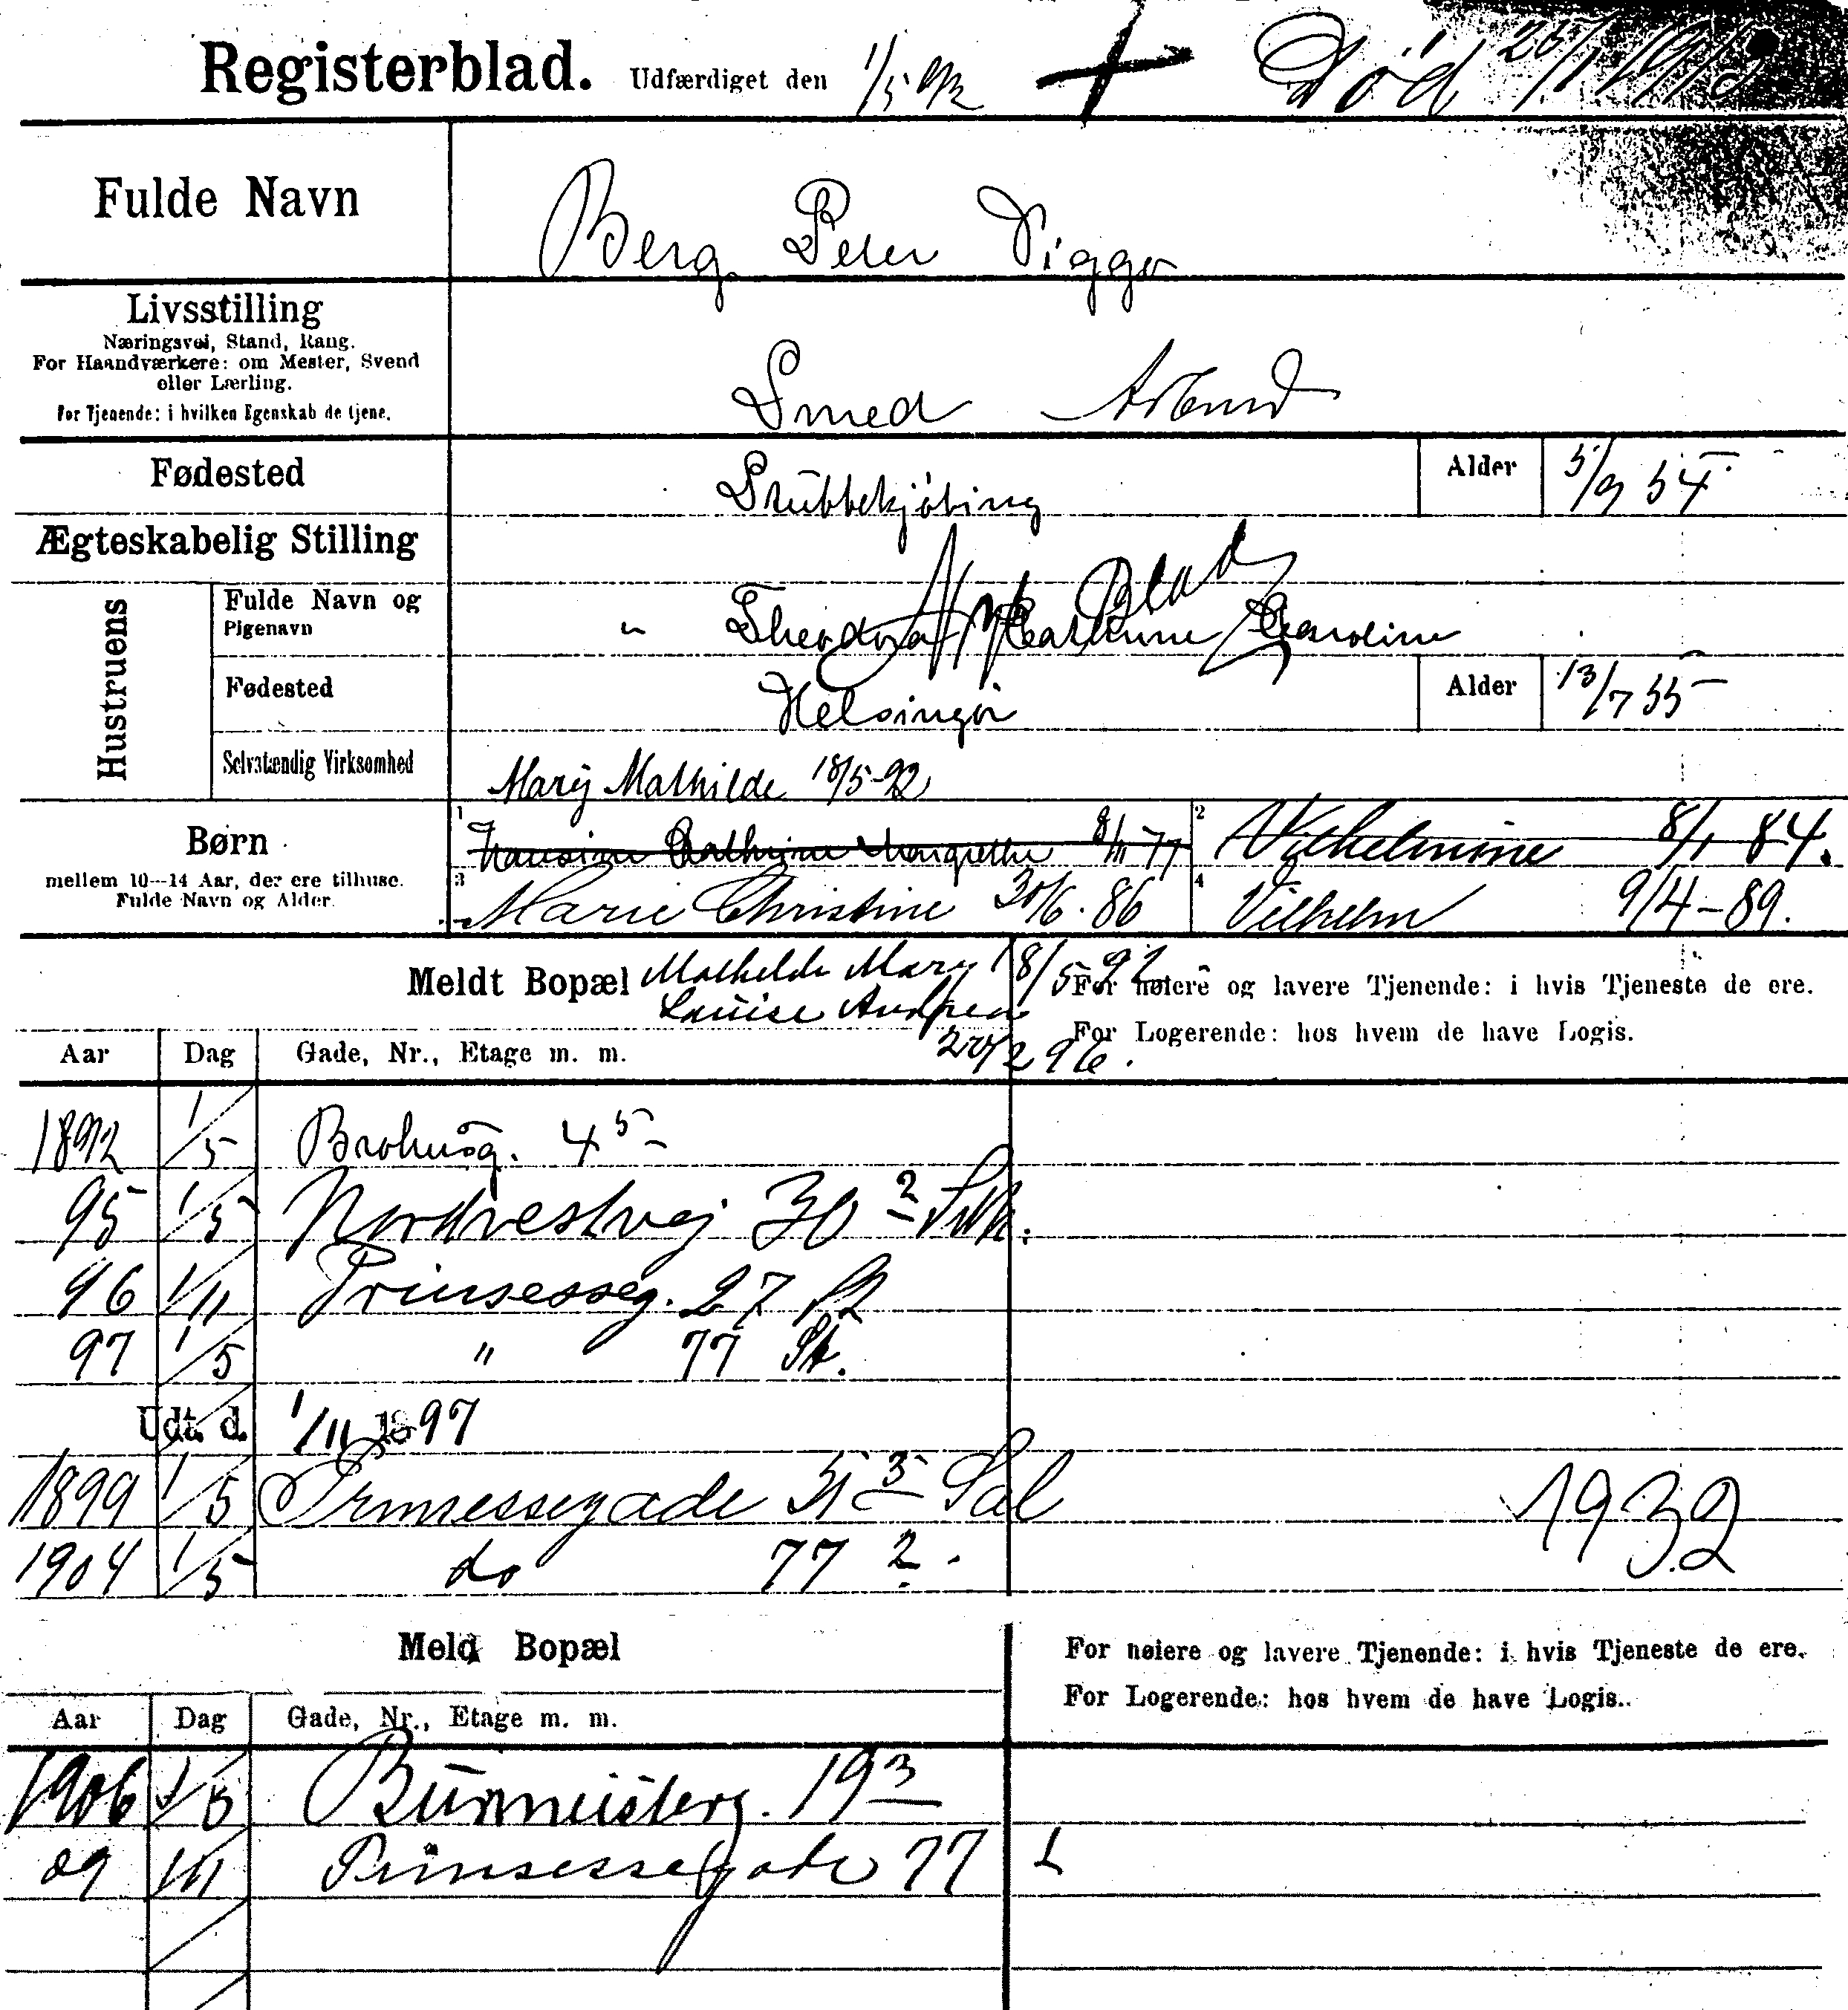 Registerblad. Udfærdiget den 1/5 92 + Død 25/1 19
Fulde Navn Berg Peter Viggo
Livsstilling Smed Arbmd
Næringsvei, Stand, Rang.
For Haandværkere: om Mester, Svend
eller Lærling.
For Tjenende: i hvilken Egenskab de tjene.
Fødested Stubbekjøbing Alder 5/9 54
Ægteskabelig Stilling
Nyt Blad
Hustruens
Fulde Navn og Pigenavn " Theodora Cathrine Caroline
Fødested Helsingør Alder 13/7 55
Selvstændig Virksomhed Mary Mathilde 18/5-92
Børn 1 Cathrine Margrethe 8/11 77 2 Vilhelmine 8/1 84.
mellem 10-14 Aar, der ere tilhuse.
Fulde Navn og Alder. 3 Marie Christine 30/6. 86 4 Vilhelm 9/4-89.
Meldt Bopæl Mathilde Mary 18/5 92 For høiere og lavere Tjenende: i hvis Tjeneste de ere.
Louise Andrea 20/2 96. For Logerende: hos hvem de have Logis.
Aar Dag Gade, Nr., Etage m. m.
1892 1/5 Brohusg. 4 5
95 1/5 Nordvestvej 30 2
96 1/11 Prinsesseg. 27 St
97 1/5 " 77 St.
Udt. d. 1/11 1897
1899 1/5 Prinsessegade 51 3 Sal
1904 1/5 do 77 2.
1932
Meldt Bopæl For høiere og lavere Tjenende: i hvis Tjeneste de ere.
For Logerende: hos hvem de have Logis.
Aar Dag Gade, Nr., Etage m. m.
1906 1/5 Burmeisterg. 19 3
09 1/11 Prinsessegade 77 L